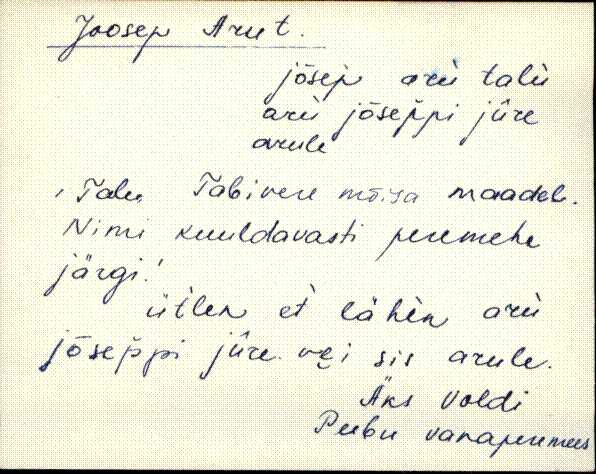 Joosep Arut.
jõsep arü talü
arü jõsep̆pi jûre
arule
Talu Tabivere mõisa maadel.
Nimi kuuldavasti peremehe
järgi!
ütlen et lähen arü
jõsep̆pi jûre või sis arule.
Äks Voldi
Peebu vanaperemees